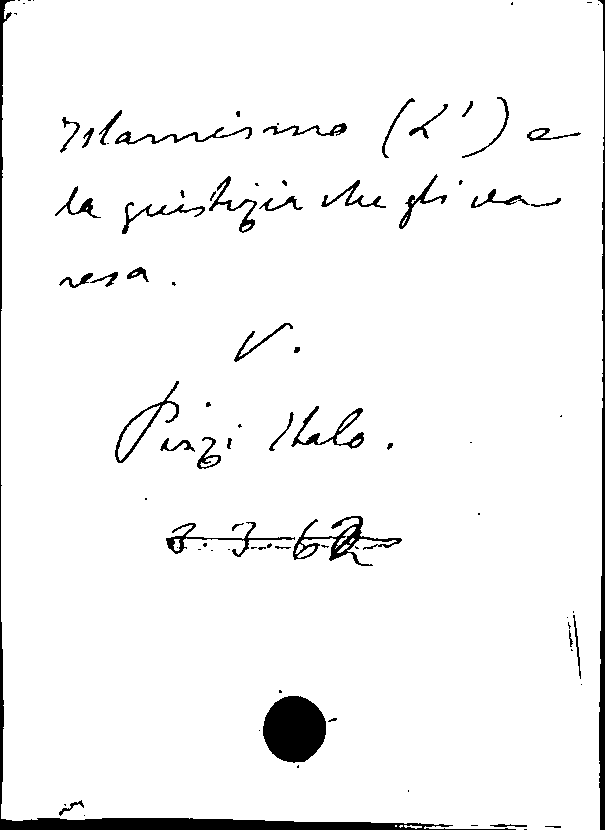 Islamismo (L') e
la giustizia che gli va
resa.
V.
Pizzi Italo.
3.3.62